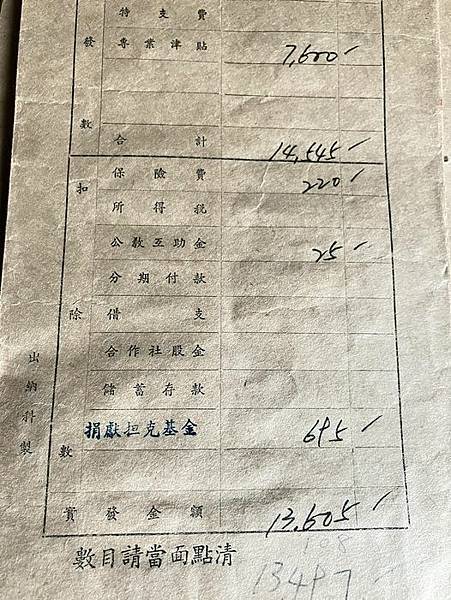 特支費
發
專業津貼 7,600
數
合計 14,545
扣
保險費 220
所得稅
公教互助金 25
分期付款
除
借支
合作社股金
儲蓄存款
出納科製
捐獻担克基金 695
數
實發金額 13,605
數目請當面點清
13497